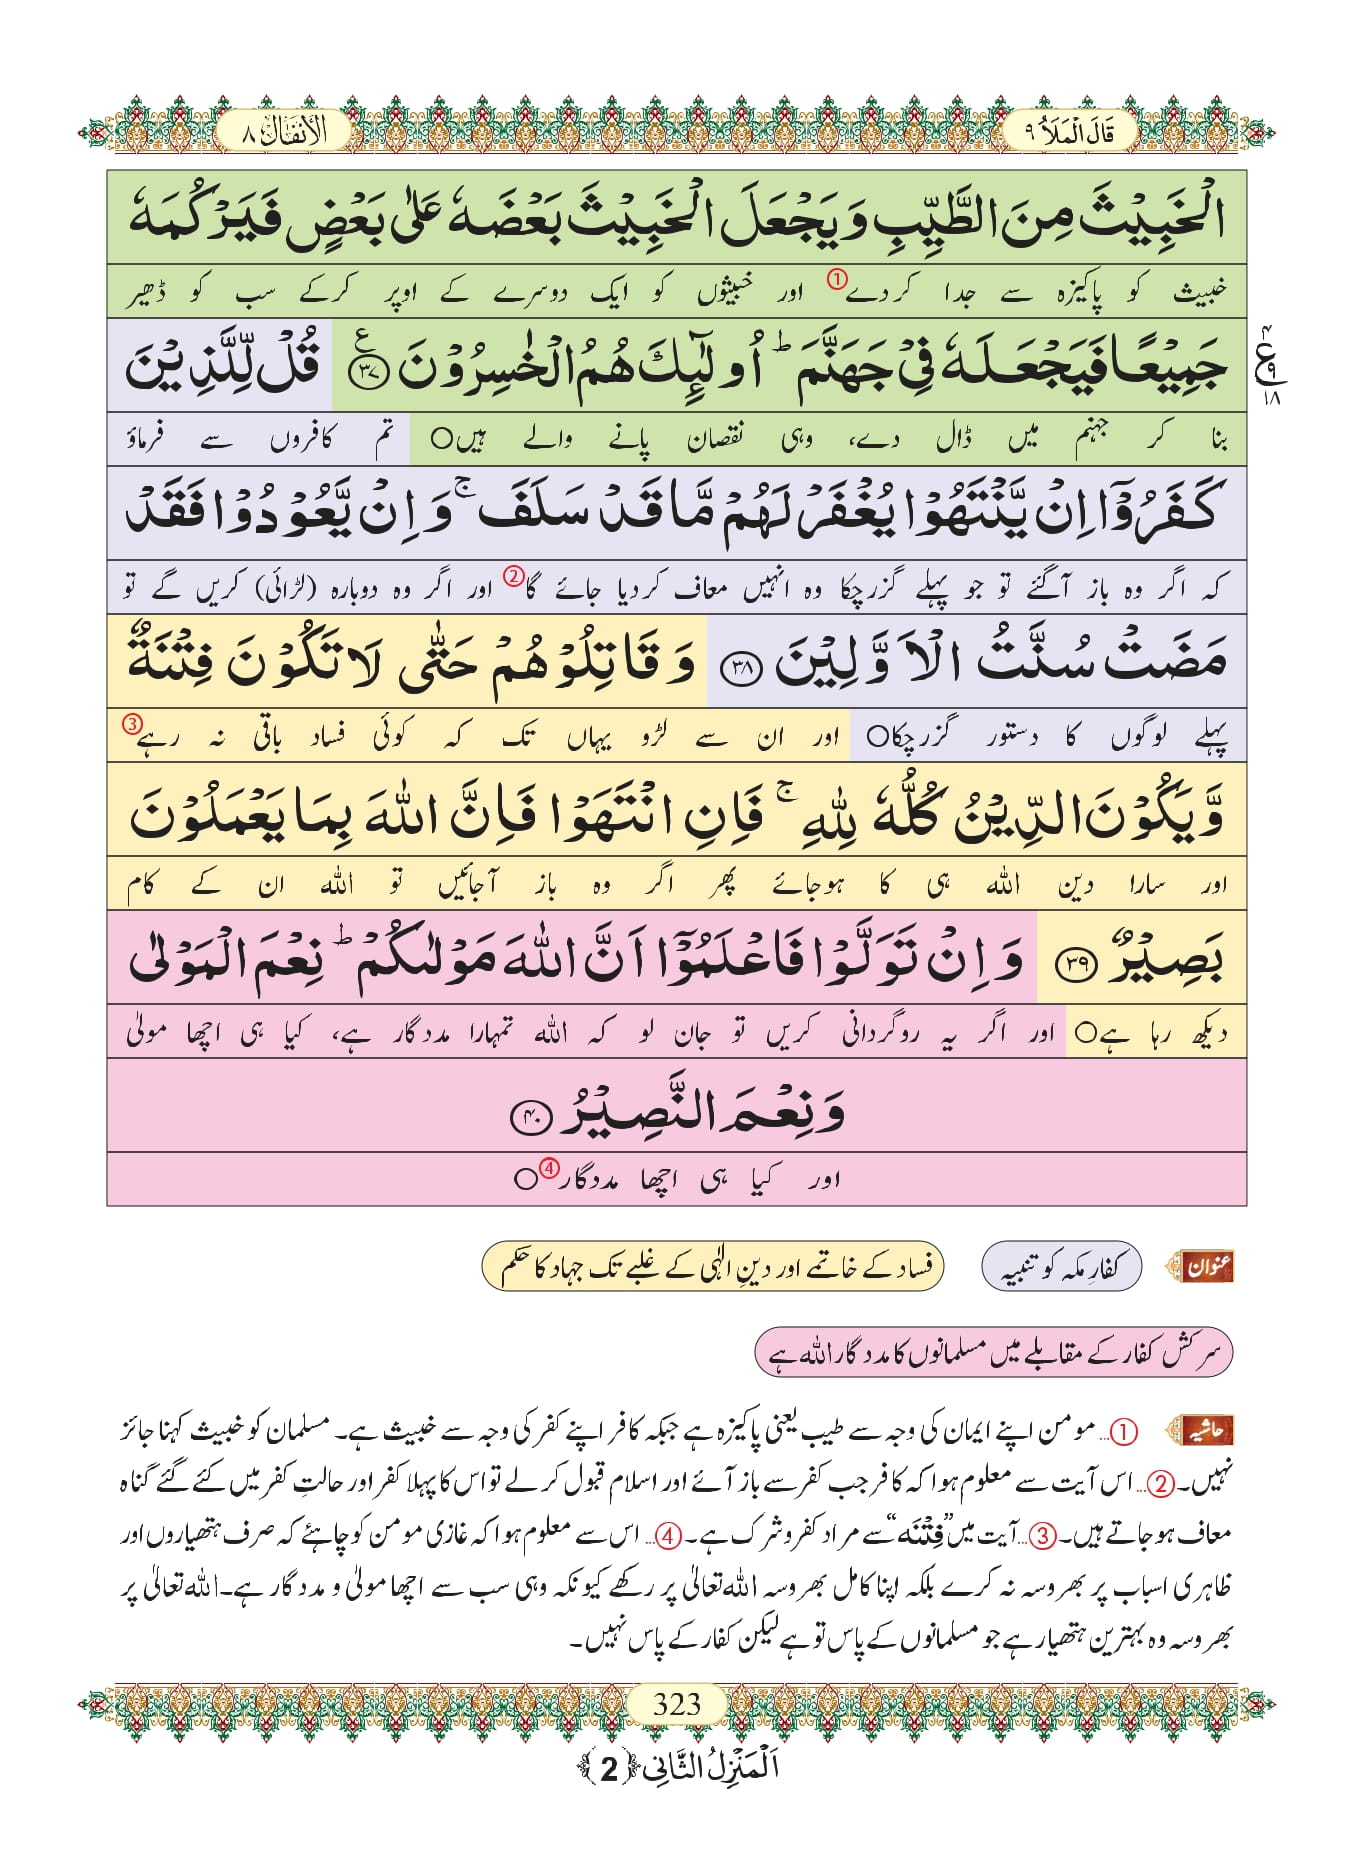 قَالَ الْمَلَاُ ۹
الْاَنْفَال ۸
الْخَبِیْثَ مِنَ الطَّیِّبِ وَ یَجْعَلَ الْخَبِیْثَ بَعْضَهٗ عَلٰى بَعْضٍ فَیَرْكُمَهٗ
خبیث کو پاکیزہ سے جدا کردے① اور خبیثوں کو ایک دوسرے کے اوپر کرکے سب کو ڈھیر
جَمِیْعًا فَیَجْعَلَهٗ فِیْ جَهَنَّمَؕ اُولٰٓىٕكَ هُمُ الْخٰسِرُوْنَ۠ ﴿۳۷﴾ قُلْ لِّلَّذِیْنَ
٤
ع
۹
۱۸
بنا کر جہنم میں ڈال دے، وہی نقصان پانے والے ہیں○ تم کافروں سے فرماؤ
كَفَرُوْۤا اِنْ یَّنْتَهُوْا یُغْفَرْ لَهُمْ مَّا قَدْ سَلَفَۚ وَ اِنْ یَّعُوْدُوْا فَقَدْ
کہ اگر وہ باز آگئے تو جو پہلے گزرچکا وہ انہیں معاف کردیا جائے گا② اور اگر وہ دوبارہ (لڑائی) کریں گے تو
مَضَتْ سُنَّتُ الْاَوَّلِیْنَ ﴿۳۸﴾ وَ قَاتِلُوْهُمْ حَتّٰى لَا تَكُوْنَ فِتْنَةٌ
پہلے لوگوں کا دستور گزرچکا○ اور ان سے لڑو یہاں تک کہ کوئی فساد باقی نہ رہے③
وَّ یَكُوْنَ الدِّیْنُ كُلُّهٗ لِلّٰهِۚ فَاِنِ انْتَهَوْا فَاِنَّ اللّٰهَ بِمَا یَعْمَلُوْنَ
اور سارا دین اللہ ہی کا ہوجائے پھر اگر وہ باز آجائیں تو اللہ ان کے کام
بَصِیْرٌ ﴿۳۹﴾ وَ اِنْ تَوَلَّوْا فَاعْلَمُوْۤا اَنَّ اللّٰهَ مَوْلٰىكُمْؕ نِعْمَ الْمَوْلٰى
دیکھ رہا ہے○ اور اگر یہ روگردانی کریں تو جان لو کہ اللہ تمہارا مددگار ہے، کیا ہی اچھا مولیٰ
وَ نِعْمَ النَّصِیْرُ ﴿۴۰﴾
اور کیا ہی اچھا مددگار④○
عنوان کفارِ مکہ کو تنبیہ فساد کے خاتمے اور دینِ الٰہی کے غلبے تک جہاد کا حکم
سرکش کفار کے مقابلے میں مسلمانوں کا مددگار اللہ ہے
حاشیہ ①… مومن اپنے ایمان کی وجہ سے طیب یعنی پاکیزہ ہے جبکہ کافر اپنے کفر کی وجہ سے خبیث ہے۔ مسلمان کو خبیث کہنا جائز
نہیں۔ ②… اس آیت سے معلوم ہوا کہ کافر جب کفر سے باز آئے اور اسلام قبول کرلے تو اس کا پہلا کفر اور حالتِ کفر میں کئے گئے گناہ
معاف ہوجاتے ہیں۔ ③… آیت میں ”فِتْنَه“ سے مراد کفر و شرک ہے۔ ④… اس سے معلوم ہوا کہ غازی مومن کو چاہئے کہ صرف ہتھیاروں اور
ظاہری اسباب پر بھروسہ نہ کرے بلکہ اپنا کامل بھروسہ اللہ تعالیٰ پر رکھے کیونکہ وہی سب سے اچھا مولیٰ و مددگار ہے۔ اللہ تعالیٰ پر
بھروسہ وہ بہترین ہتھیار ہے جو مسلمانوں کے پاس تو ہے لیکن کفار کے پاس نہیں۔
323
اَلْمَنْزِلُ الثَّانِی ﴿2﴾